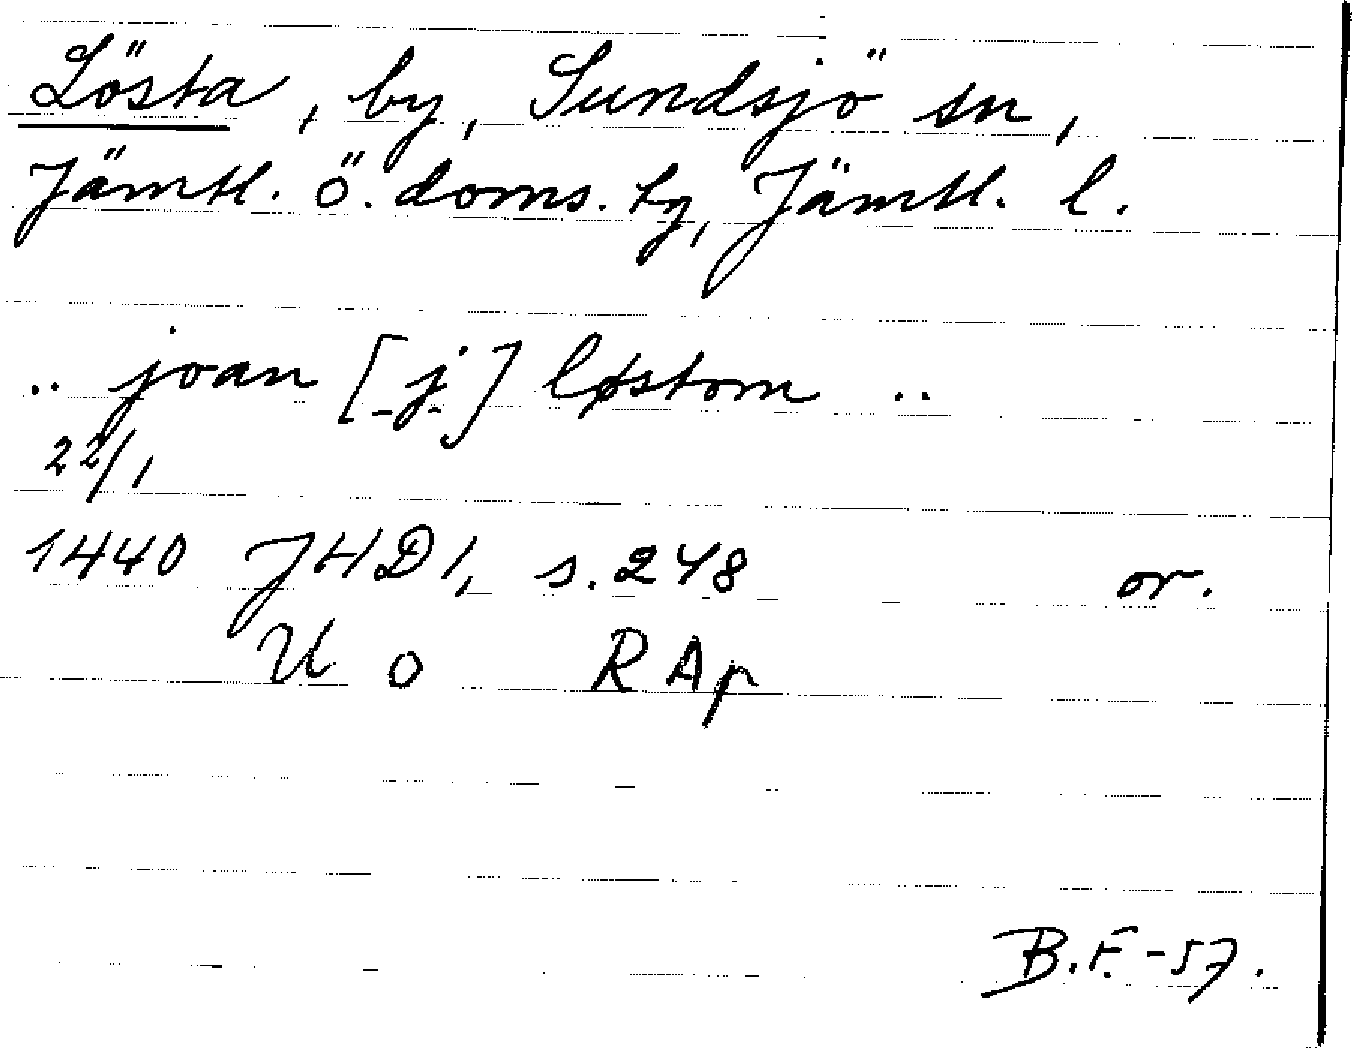 Lösta, by, Sundsjö sn,
Jämtl. ö. doms. tg, Jämtl. l.
.. joan [j] løstom ..
22/1
1440 JHD 1, s. 248 or.
U o RAp
B.F. -57.